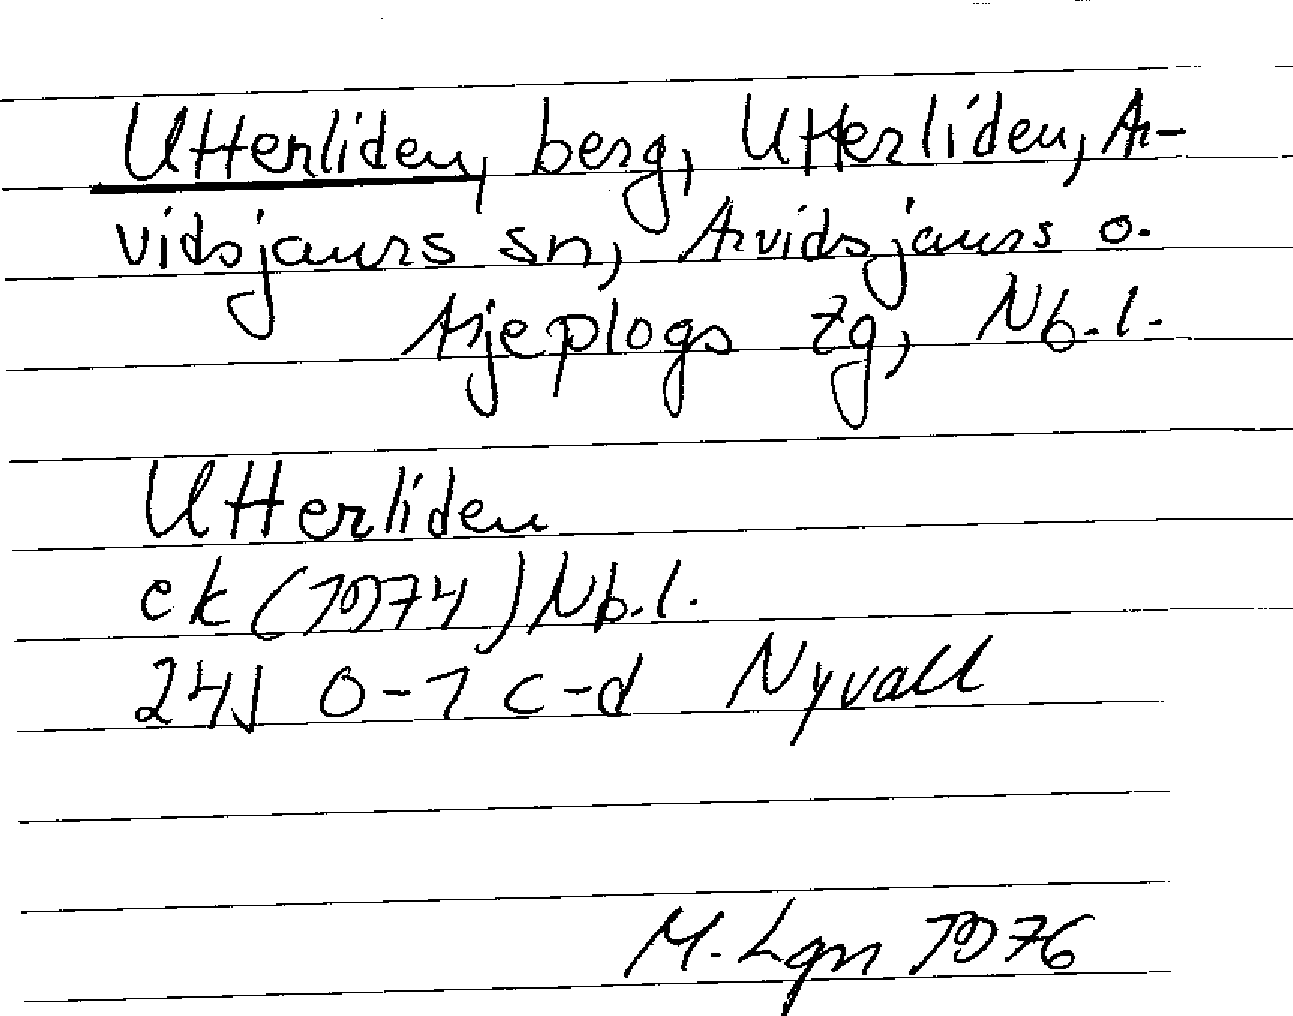 Utterliden, berg, Utterliden, Ar-
vidsjaurs sn, Arvidsjaurs o.
Arjeplogs tg, Nb.l.
Utterliden
ek (1974) Nb.l.
24J 0-1 c-d Nyvall
M. Lgn 1976